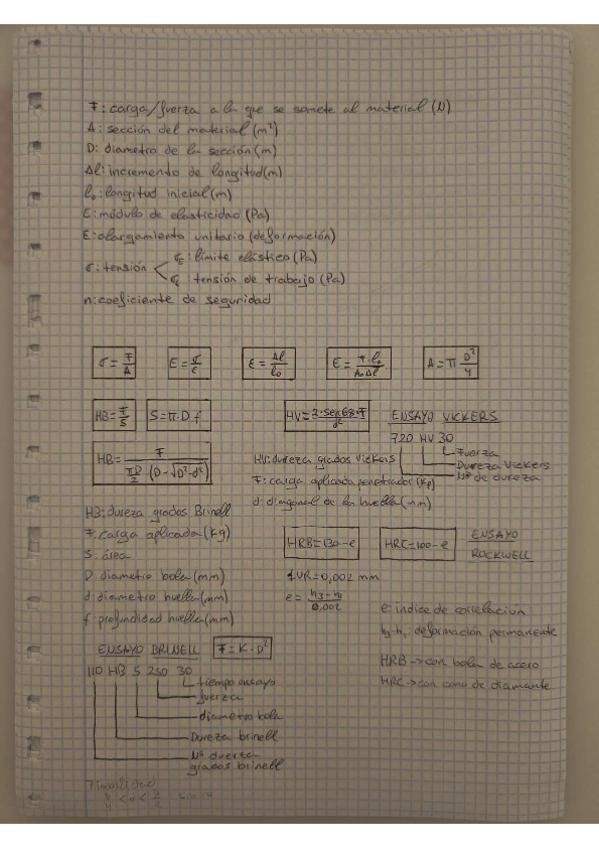 F: carga/fuerza a la que se somete al material (N)
A: sección del material (m²)
D: diametro de la sección (m)
Δl: incremento de longitud (m)
l₀: longitud inicial (m)
E: módulo de elasticidad (Pa)
Ɛ: alargamiento unitario (deformación)
σ: tensión
σE: límite elástico (Pa)
σt: tensión de trabajo (Pa)
n: coeficiente de seguridad
σ = F/A
E = σ/ε
ε = Δl/l₀
E = F·l₀/A₀Δl
A = π D²/4
HB = F/S
S = π·D f
HV = 2·sen68·F/d²
ENSAYO VICKERS
720 HV 30
Fuerza
Dureza Vickers
Nº de dureza
HB = F / πD/2 (D-√D²-d²)
HV: dureza grados Vickers
F: carga aplicada penetrador (Kp)
d: diagonal de la huella (mm)
HB: dureza grados Brinell
F: carga aplicada (Kg)
S: área
D: diametro bola (mm)
d: diametro huella (mm)
f: profundidad huella (mm)
HRB = 130-e
HRC = 100-e
ENSAYO
ROCKWELL
1UR = 0,002 mm
e = h3-h1/0,002
e: indice de correlacion
h3-h1: deformación permanente
HRB → con bola de acero
HRC → con cono de diamante
ENSAYO BRINELL
F = K·D²
110 HB 5 250 30
tiempo ensayo
fuerza
diametro bola
Dureza brinell
Nº
grados brinell